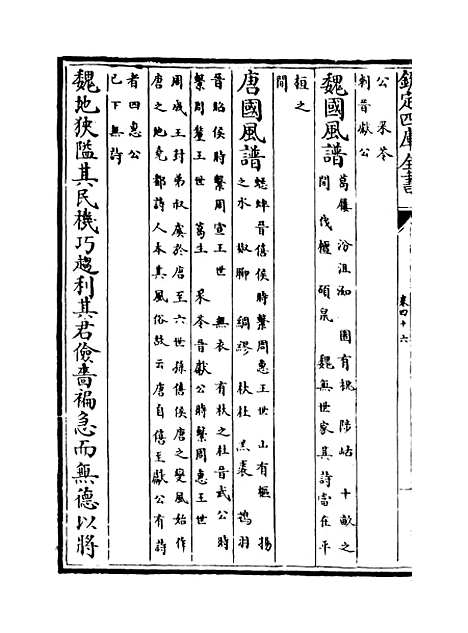 欽定四庫全書
卷四十六
公 采苓
刺晉獻公
魏國風譜 葛屨 汾沮洳 園有桃 陟岵 十畝之
間 伐檀 碩鼠 魏無世家其詩當在平
桓之
間
唐國風譜 蟋蟀晉僖侯時繫周惠王世 山有樞 揚
之水 椒聊 綢繆 杕杜 羔裘 鴇羽
晉昭侯時繫周宣王世 無衣 有杕之杜晉武公時
繫周釐王世 葛生 采苓晉獻公時繫周惠王世
周成王封弟叔虞於唐至六世孫僖侯唐之變風始作
唐之地堯都詩人本其風俗故云唐自僖至獻公有詩
者四惠公
已下無詩
魏地狹隘其民機巧趨利其君儉嗇褊急而無德以將